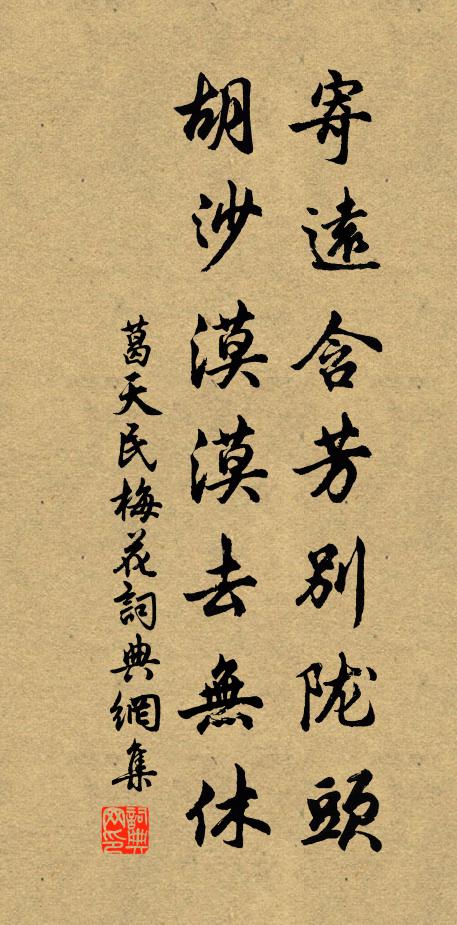 寄遠含芳別陇頭
胡沙漠漠去無休
葛天民梅花詞典網集
詞典网印